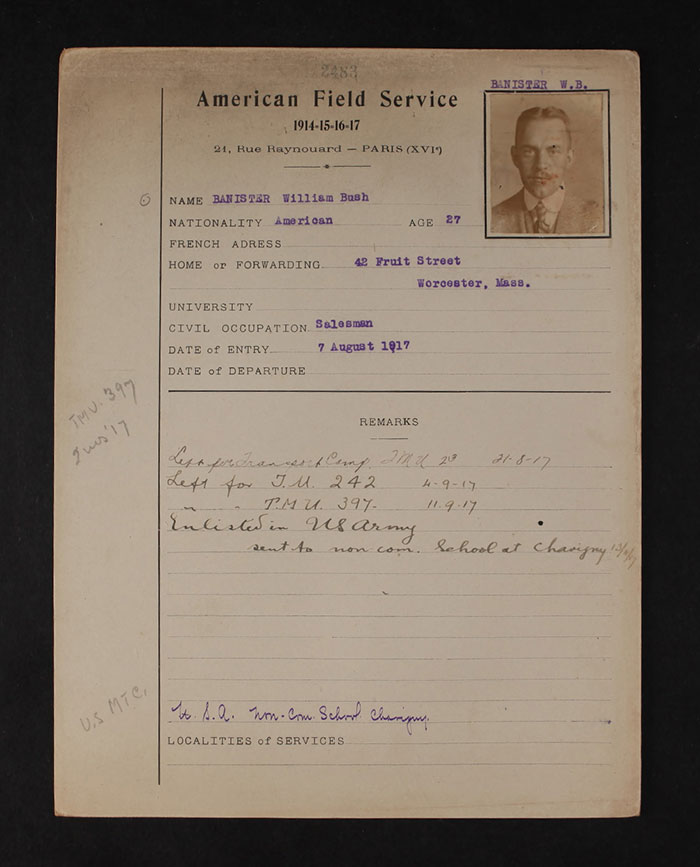 2483
BANISTER W.B.
American Field Service
1914-15-16-17
21, Rue Raynouard — PARIS (XVIe)
NAME BANISTER William Bush
NATIONALITY American AGE 27
FRENCH ADRESS
HOME or FORWARDING 42 Fruit Street
Worcester, Mass.
UNIVERSITY
CIVIL OCCUPATION Salesman
DATE of ENTRY 7 August 1917
DATE of DEPARTURE
TMU. 397
'17
REMARKS
Left for Transport Camp. TMU 21-8-17
Left for T.U. 242 4-9-17
" " T.M.U. 397- 11-9-17
Enlisted in US Army
sent to non com. School at Chavigny
U.S MTC.
U. S. A. Non-Com. School Chavigny.
LOCALITIES of SERVICES